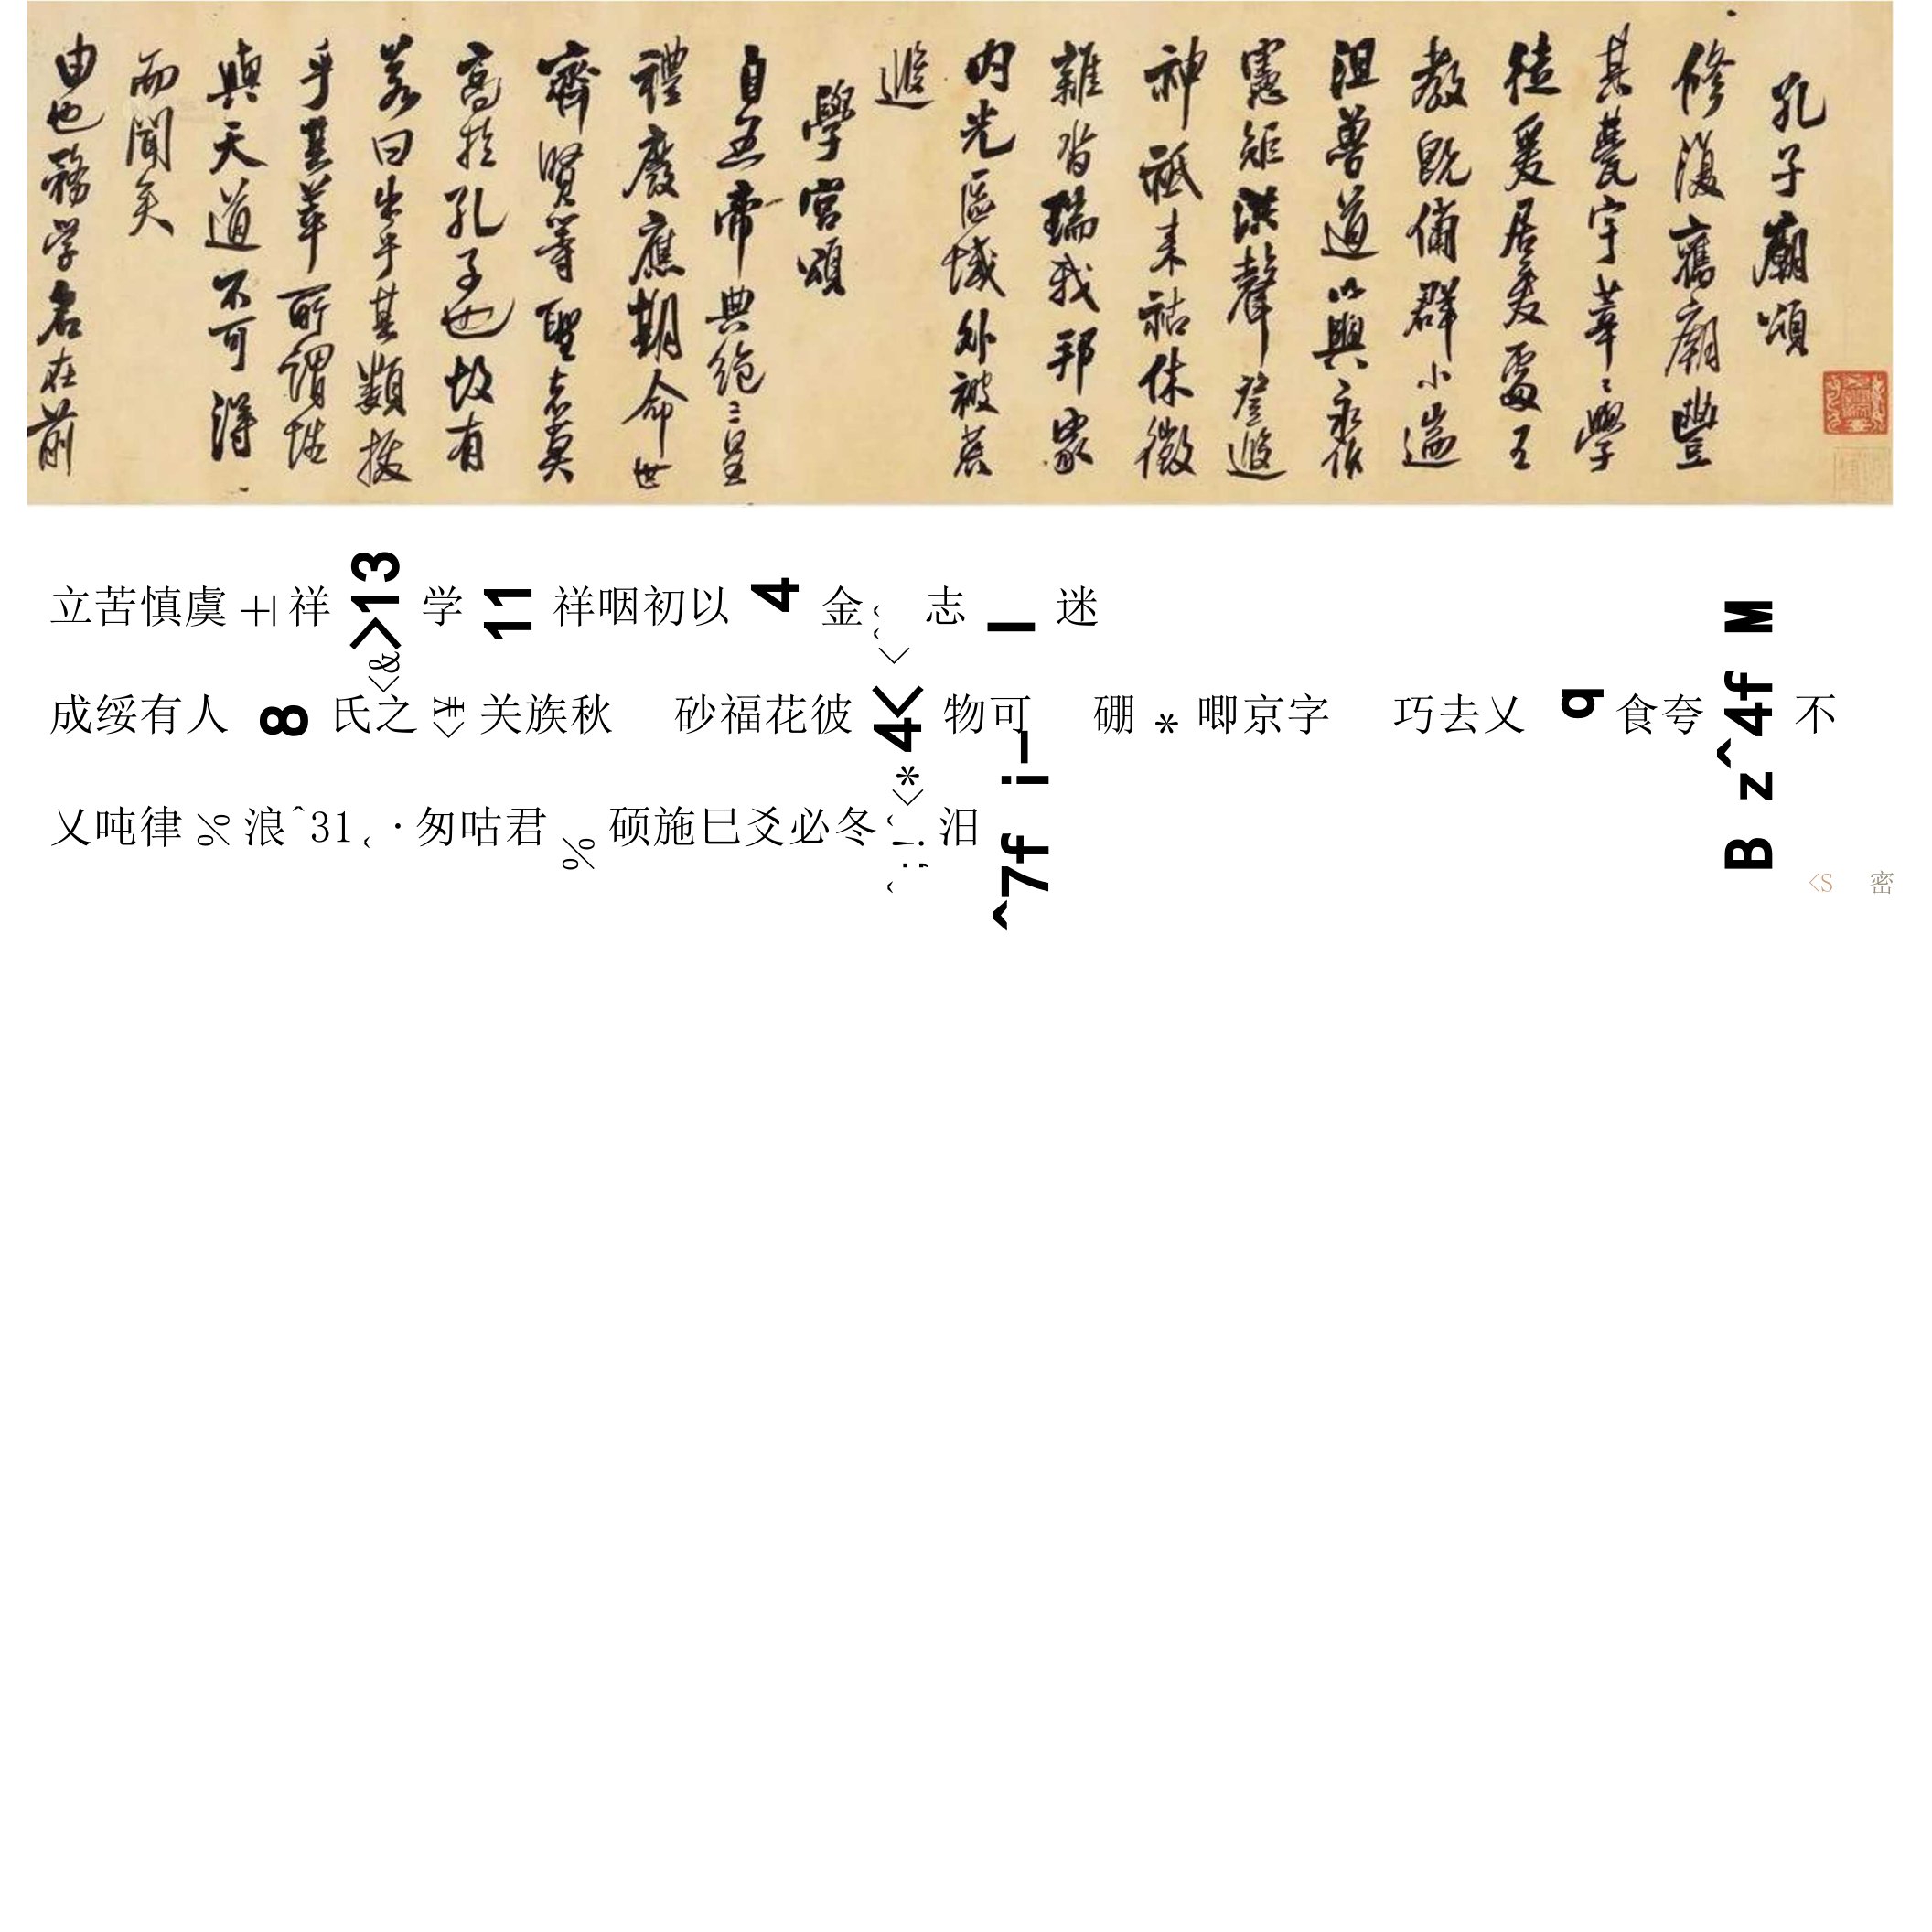 孔子廟頌
修復舊廟豐
其甍宇莘〻學
徒爰居爰處王
教既備群小遄
沮魯道以興永作
憲矩洪聲登遐
神祇來祜休徵
雜沓瑞我邦家
内光區域外被荒
遐
學宮頌
自五帝典絶三皇
禮廢應期命世
齊賢等聖者莫
高於孔子也故有
若曰出乎其類拔
乎其萃所謂性
與天道不可得
而聞矣
由也務学名在前
立苦慎虞 祥 <&>13 学 11 祥咽初以 4 金 志 I 迷
成绥有人 8 氏之 <¥ 关族秋 砂福花彼 <*4< 物可 硼 * 唧京字 巧去乂 q 食夸 B z^4f M 不
乂吨律%浪^31 ·匆咕君%硕施巳爻必冬 汨 ^7f i-
<S 密